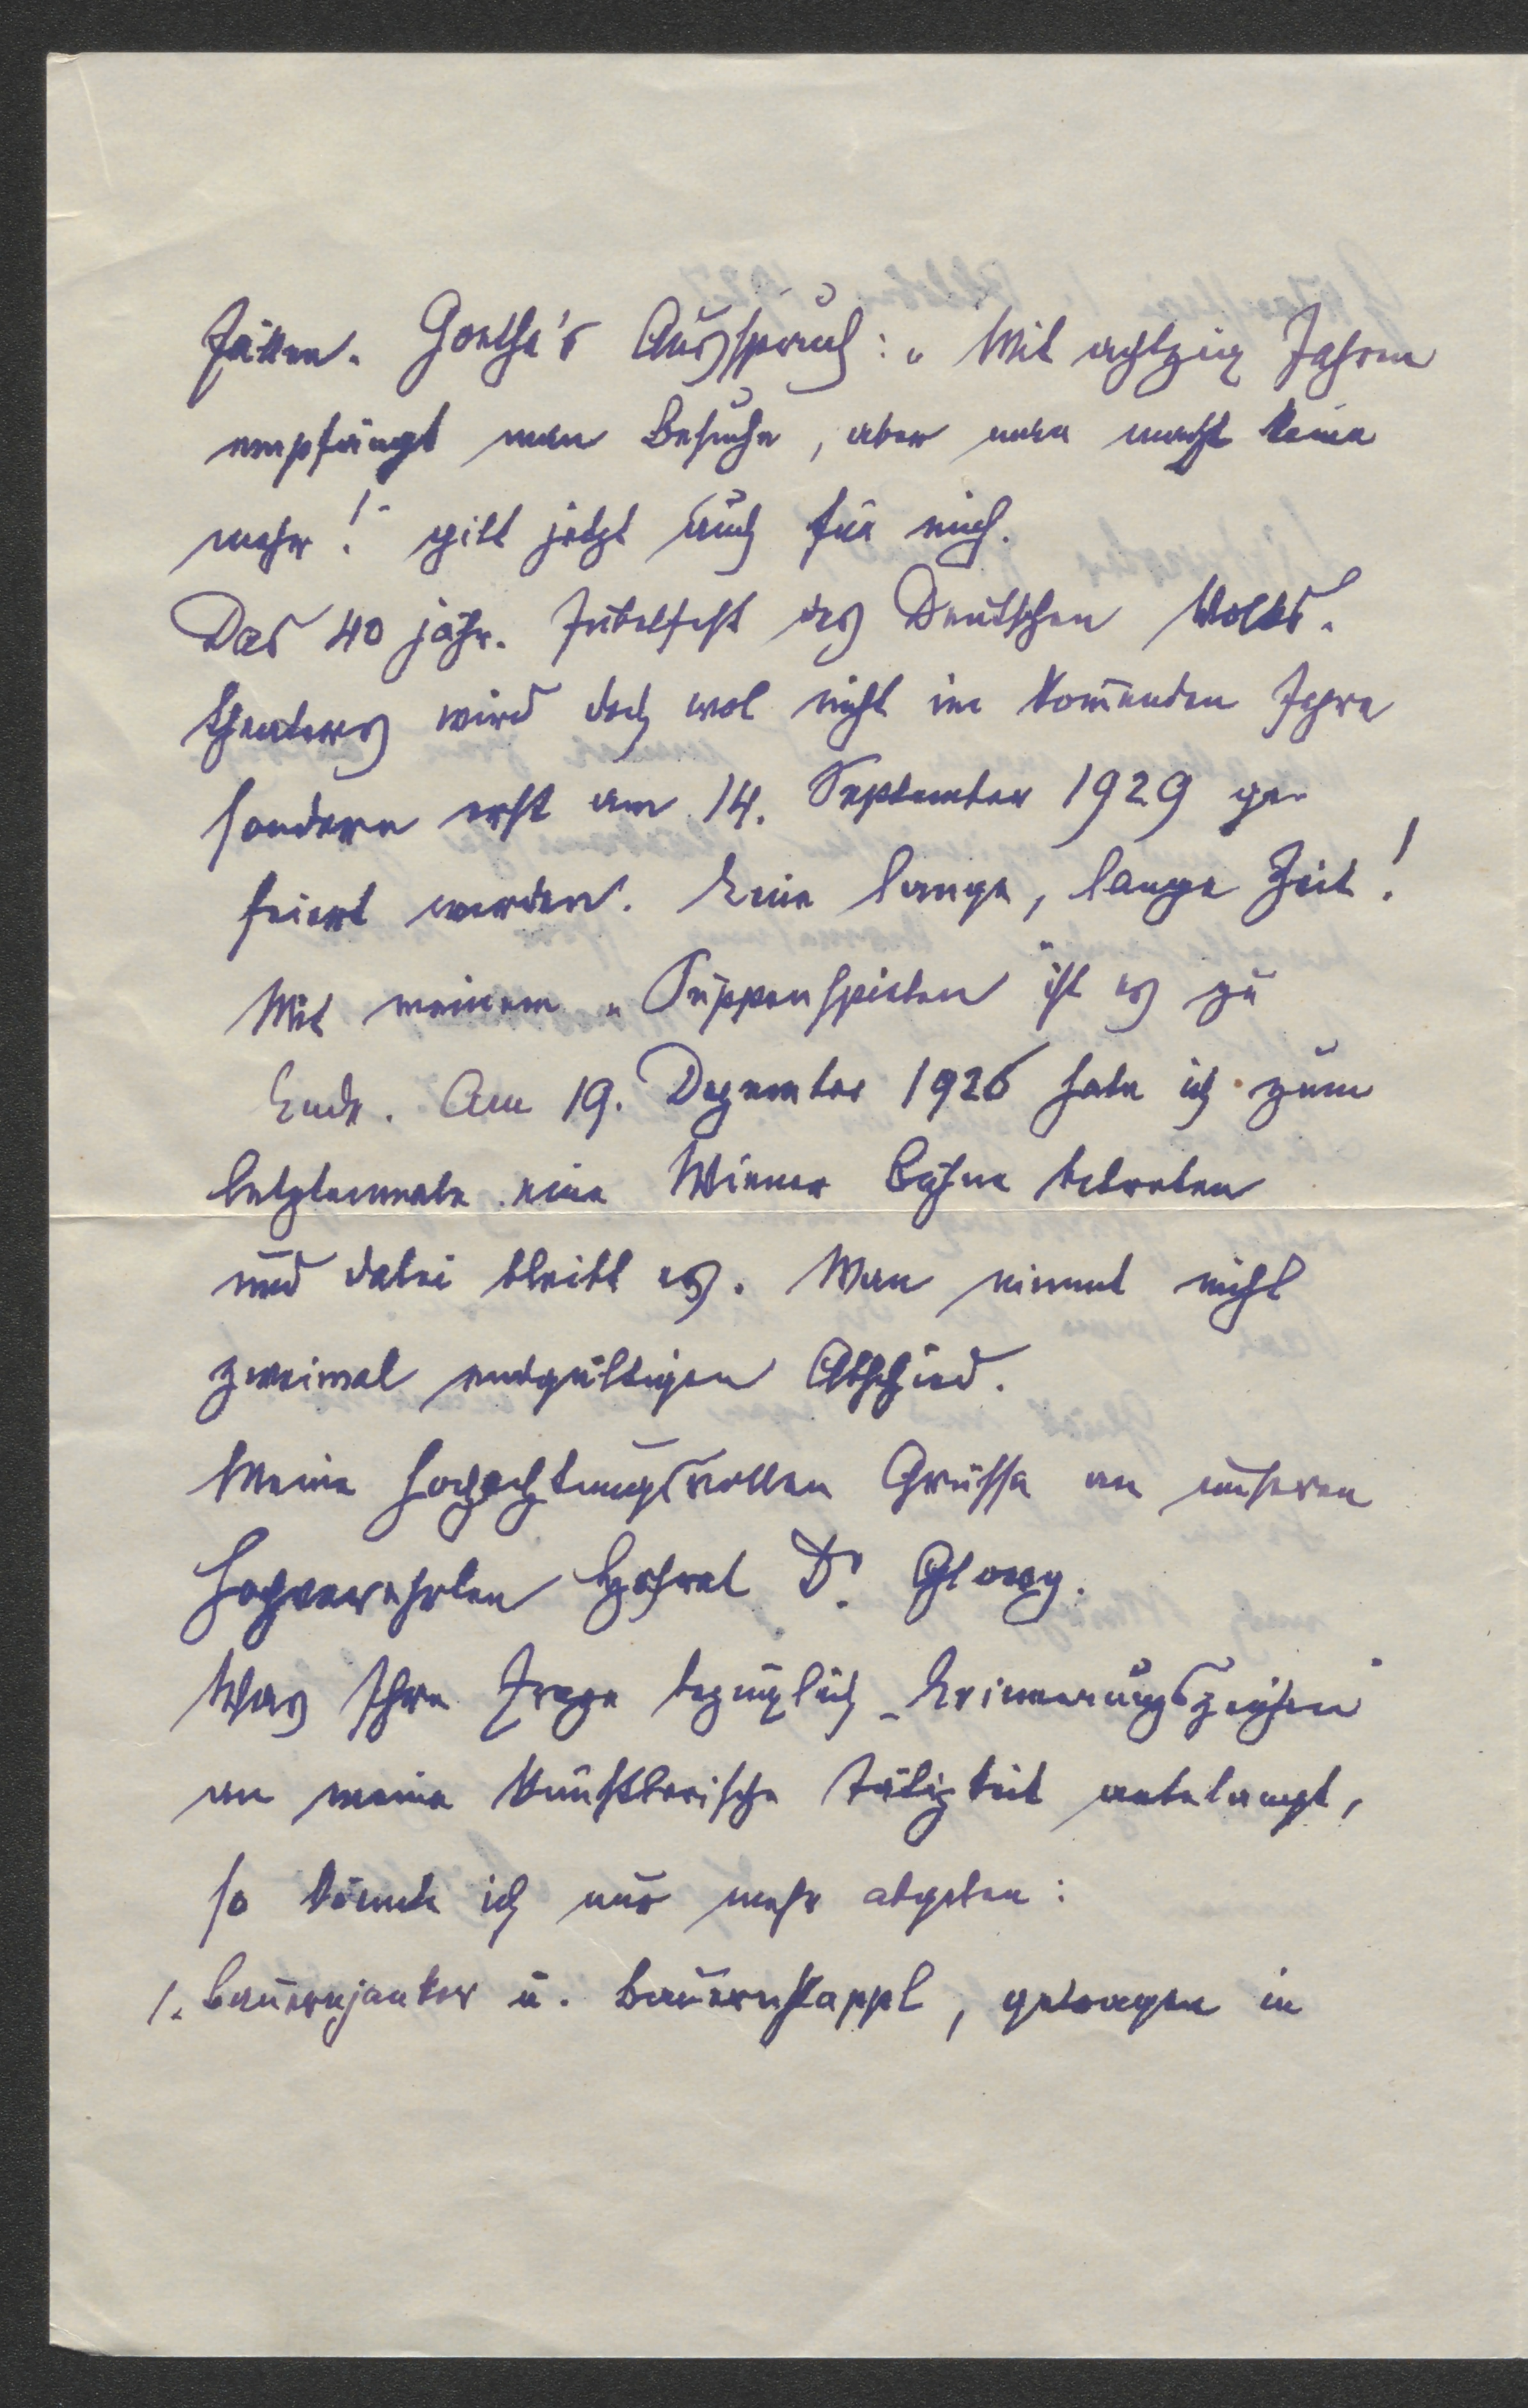 fällen. Goethe's Ausspruch: „Mit achtzig Jahren
empfängt man Besuche, aber man macht keine
mehr!“ gilt jetzt auch für mich.
Das 40 jähr. Jubelfest des Deutschen Volks-
theaters wird doch wol nicht im kom̅enden Jahre
sondern erst am 14. September 1929 ge-
feiert werden. Eine lange, lange Zeit!
Mit meinem „Puppenspielen“ ist es zu
Ende. Am 19. Dezember 1926 habe ich zum
letztenmale eine Wiener Bühne betreten
und dabei bleibt es. Man nimmt nicht
zweimal endgültigen Abschied.
Meine hochachtungsvollen Grüsse an unseren
hochverehrten Hofrat Dr. Glossy.
Was Ihre Frage bezüglich „Erinnerungszeichen“
an meine künstlerische Tätigkeit anbelangt,
so könnte ich nur mehr abgeben:
1. Bauernjanker u. Bauernkappl, getragen in